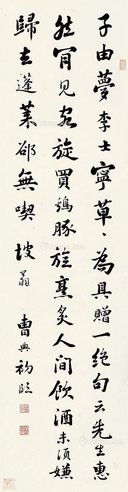 子由夢李士寧草〻為具贈一絕句云先生惠
然肎見客旋買鷄豚旋烹炙人間飲酒未須嫌
歸去蓬萊卻無喫 坡翁 曹典初臨